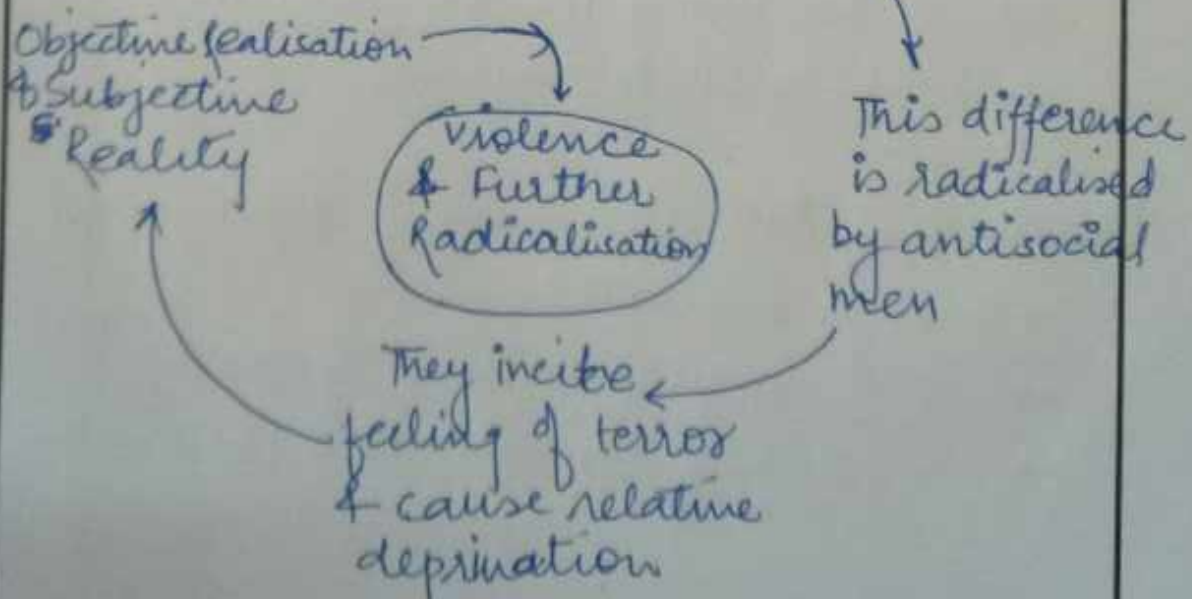 Objective Realisation
& Subjective
Reality
Violence
& Further
Radicalisation
This difference
is radicalised
by antisocial
men
They incite
feeling of terror
& cause relative
deprivation